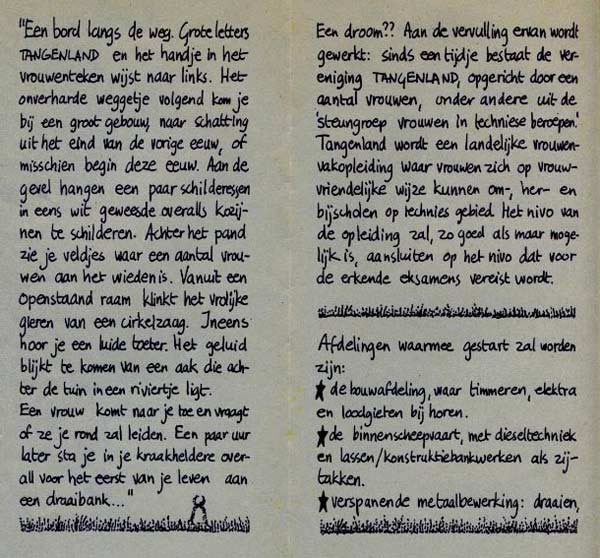 "Een bord langs de weg. Grote letters
TANGENLAND en het handje in het
vrouwenteken wijst naar links. Het
onverharde weggetje volgend kom je
bij een groot gebouw, naar schatting
uit het eind van de vorige eeuw, of
misschien begin deze eeuw. Aan de
gevel hangen een paar schilderessen
in eens wit geweesde overalls kozij-
nen te schilderen. Achter het pand
zie je veldjes waar een aantal vrou-
wen aan het wieden is. Vanuit een
openstaand raam klinkt het vrolijke
gieren van een cirkelzaag. Ineens
hoor je een luide toeter. Het geluid
blijkt te komen van een aak die ach-
ter de tuin in een riviertje ligt.
Een vrouw komt naar je toe en vraagt
of ze je rond zal leiden. Een paar uur
later sta je in je kraakheldere over-
all voor het eerst van je leven aan
een draaibank..."
Een droom?? Aan de vervulling ervan wordt
gewerkt: sinds een tijdje bestaat de ver-
eniging TANGENLAND, opgericht door een
aantal vrouwen, onder andere uit de
'steungroep vrouwen in techniese beroepen.'
Tangenland wordt een landelijke vrouwen-
vakopleiding waar vrouwen zich op vrouw-
vriendelijke wijze kunnen om-, her- en
bijscholen op technies gebied. Het nivo van
de opleiding zal, zo goed als maar moge-
lijk is, aansluiten op het nivo dat voor
de erkende eksamens vereist wordt.
Afdelingen waarmee gestart zal worden
zijn:
★ de bouwafdeling, waar timmeren, elektra
en loodgieten bij horen.
★ de binnenscheepvaart, met dieseltechniek
en lassen/konstruktiebankwerken als zij-
takken.
★ verspanende metaalbewerking: draaien,